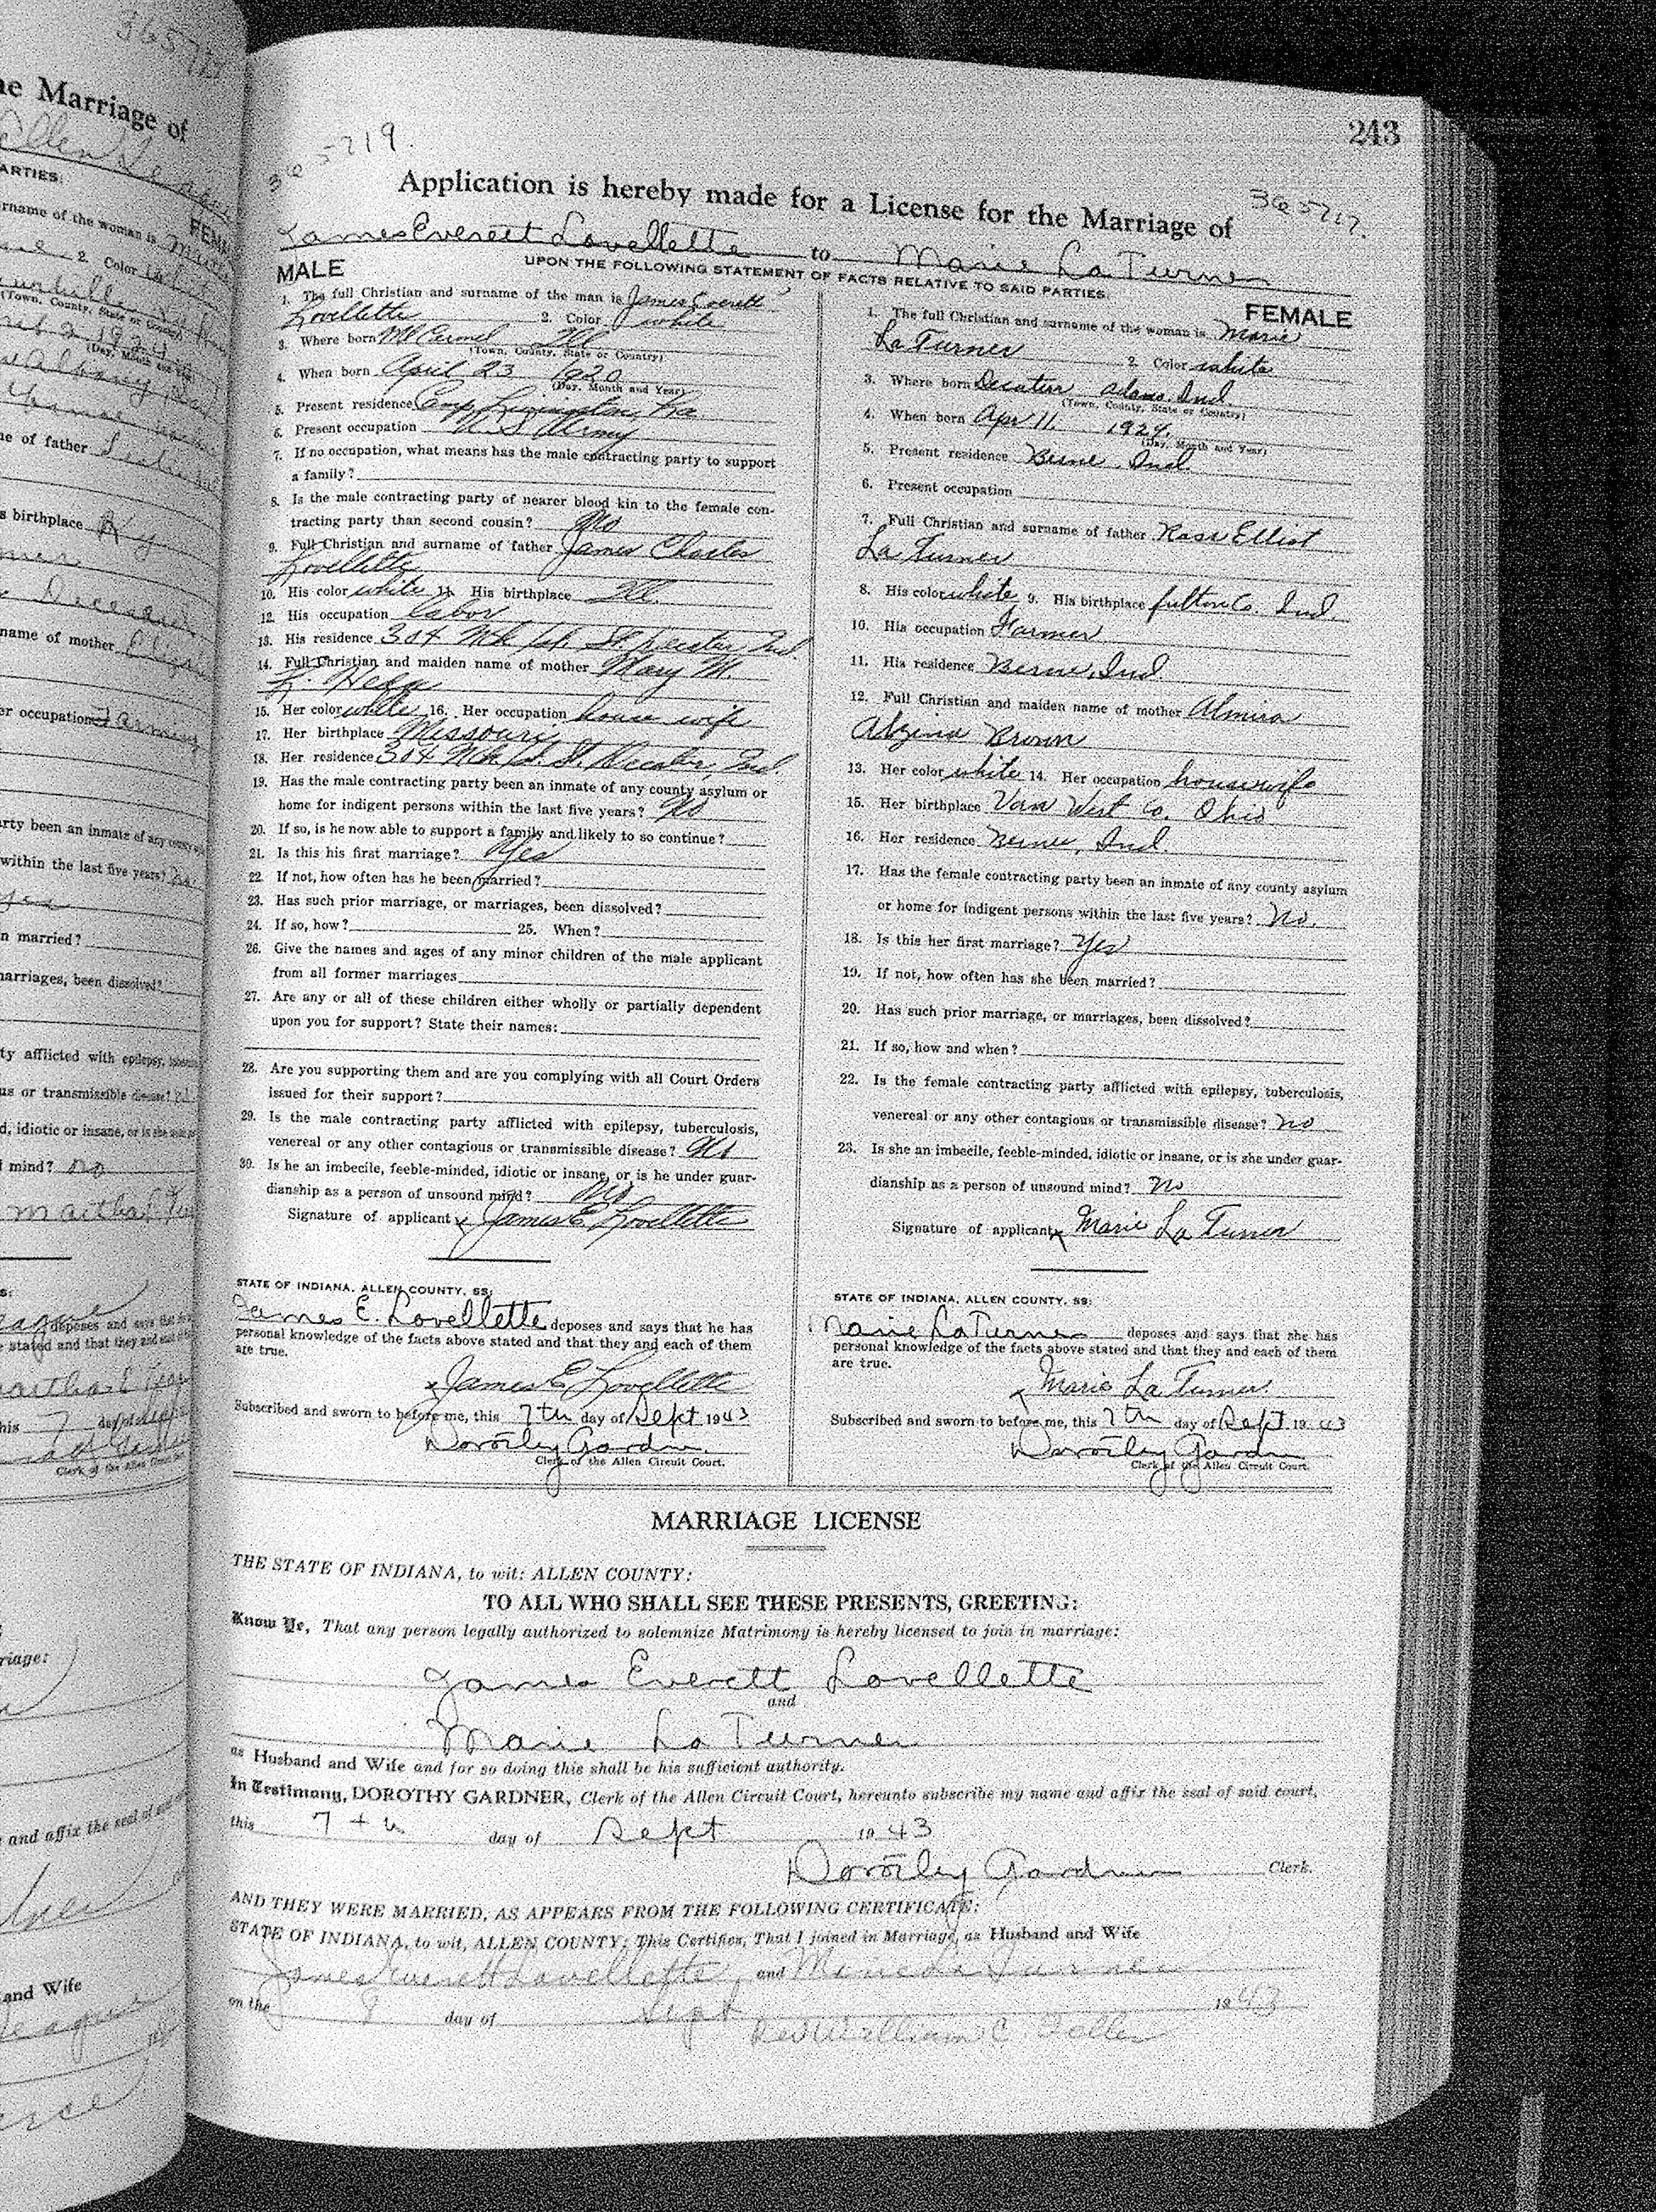 243
365719.
365717.
Application is hereby made for a License for the Marriage of
James Everett Lovellette to Marie La Turner
UPON THE FOLLOWING STATEMENT OF FACTS RELATIVE TO SAID PARTIES:
MALE
1. The full Christian and surname of the man is James Everett
Lovellette 2. Color white
3. Where born Mt Carmel Ill
(Town, County, State or Country)
4. When born April 23 1920
(Day, Month and Year)
5. Present residence Camp Livingston, La.
6. Present occupation U S Army
7. If no occupation, what means has the male contracting party to support
a family?
8. Is the male contracting party of nearer blood kin to the female con-
tracting party than second cousin? No
9. Full Christian and surname of father James Charles
Lovellette
10. His color white 11. His birthplace Ill.
12. His occupation labor
13. His residence 304 St Decatur Ind.
14. Full Christian and maiden name of mother Mary M.
15. Her color white 16. Her occupation house wife
17. Her birthplace Missouri
18. Her residence 304 St. Decatur, Ind.
19. Has the male contracting party been an inmate of any county asylum or
home for indigent persons within the last five years? No
20. If so, is he now able to support a family and likely to so continue?
21. Is this his first marriage? Yes
22. If not, how often has he been married?
23. Has such prior marriage, or marriages, been dissolved?
24. If so, how? 25. When?
26. Give the names and ages of any minor children of the male applicant
from all former marriages
27. Are any or all of these children either wholly or partially dependent
upon you for support? State their names:
28. Are you supporting them and are you complying with all Court Orders
issued for their support?
29. Is the male contracting party afflicted with epilepsy, tuberculosis,
venereal or any other contagious or transmissible disease? No
30. Is he an imbecile, feeble-minded, idiotic or insane, or is he under guar-
dianship as a person of unsound mind? No
Signature of applicant x James E Lovellette
STATE OF INDIANA, ALLEN COUNTY, SS:
James E. Lovellette deposes and says that he has
personal knowledge of the facts above stated and that they and each of them
are true.
x James E Lovellette
Subscribed and sworn to before me, this 7th day of Sept 1943
Dorothy Gardner
Clerk of the Allen Circuit Court.
FEMALE
1. The full Christian and surname of the woman is Marie
La Turner 2. Color white
3. Where born Decatur Adams. Ind.
(Town, County, State or Country)
4. When born Apr 11. 1924.
(Day, Month and Year)
5. Present residence Berne, Ind.
6. Present occupation
7. Full Christian and surname of father Rose Elliot
La Turner
8. His color white 9. His birthplace fulton Co. Ind.
10. His occupation Farmer
11. His residence Berne, Ind.
12. Full Christian and maiden name of mother Almira
Alzina Brown
13. Her color white 14. Her occupation housewife
15. Her birthplace Van Wert Co. Ohio
16. Her residence Berne, Ind.
17. Has the female contracting party been an inmate of any county asylum
or home for indigent persons within the last five years? No.
18. Is this her first marriage? Yes
19. If not, how often has she been married?
20. Has such prior marriage, or marriages, been dissolved?
21. If so, how and when?
22. Is the female contracting party afflicted with epilepsy, tuberculosis,
venereal or any other contagious or transmissible disease? no
23. Is she an imbecile, feeble-minded, idiotic or insane, or is she under guar-
dianship as a person of unsound mind? no
Signature of applicant x Marie La Turner
STATE OF INDIANA, ALLEN COUNTY, SS:
Marie La Turner deposes and says that she has
personal knowledge of the facts above stated and that they and each of them
are true.
x Marie La Turner
Subscribed and sworn to before me, this 7th day of Sept 1943
Dorothy Gardner
Clerk of the Allen Circuit Court.
MARRIAGE LICENSE
THE STATE OF INDIANA, to wit: ALLEN COUNTY:
TO ALL WHO SHALL SEE THESE PRESENTS, GREETING:
Know Ye, That any person legally authorized to solemnize Matrimony is hereby licensed to join in marriage:
James Everett Lovellette
and
Marie La Turner
as Husband and Wife and for so doing this shall be his sufficient authority.
In Testimony, DOROTHY GARDNER, Clerk of the Allen Circuit Court, hereunto subscribe my name and affix the seal of said court,
this 7th day of Sept 1943
Dorothy Gardner Clerk.
AND THEY WERE MARRIED, AS APPEARS FROM THE FOLLOWING CERTIFICATE:
STATE OF INDIANA, to wit, ALLEN COUNTY: This Certifies, That I joined in Marriage, as Husband and Wife
James Everett Lovellette and Marie La Turner
on the 8 day of Sept 1943
Rev William C.